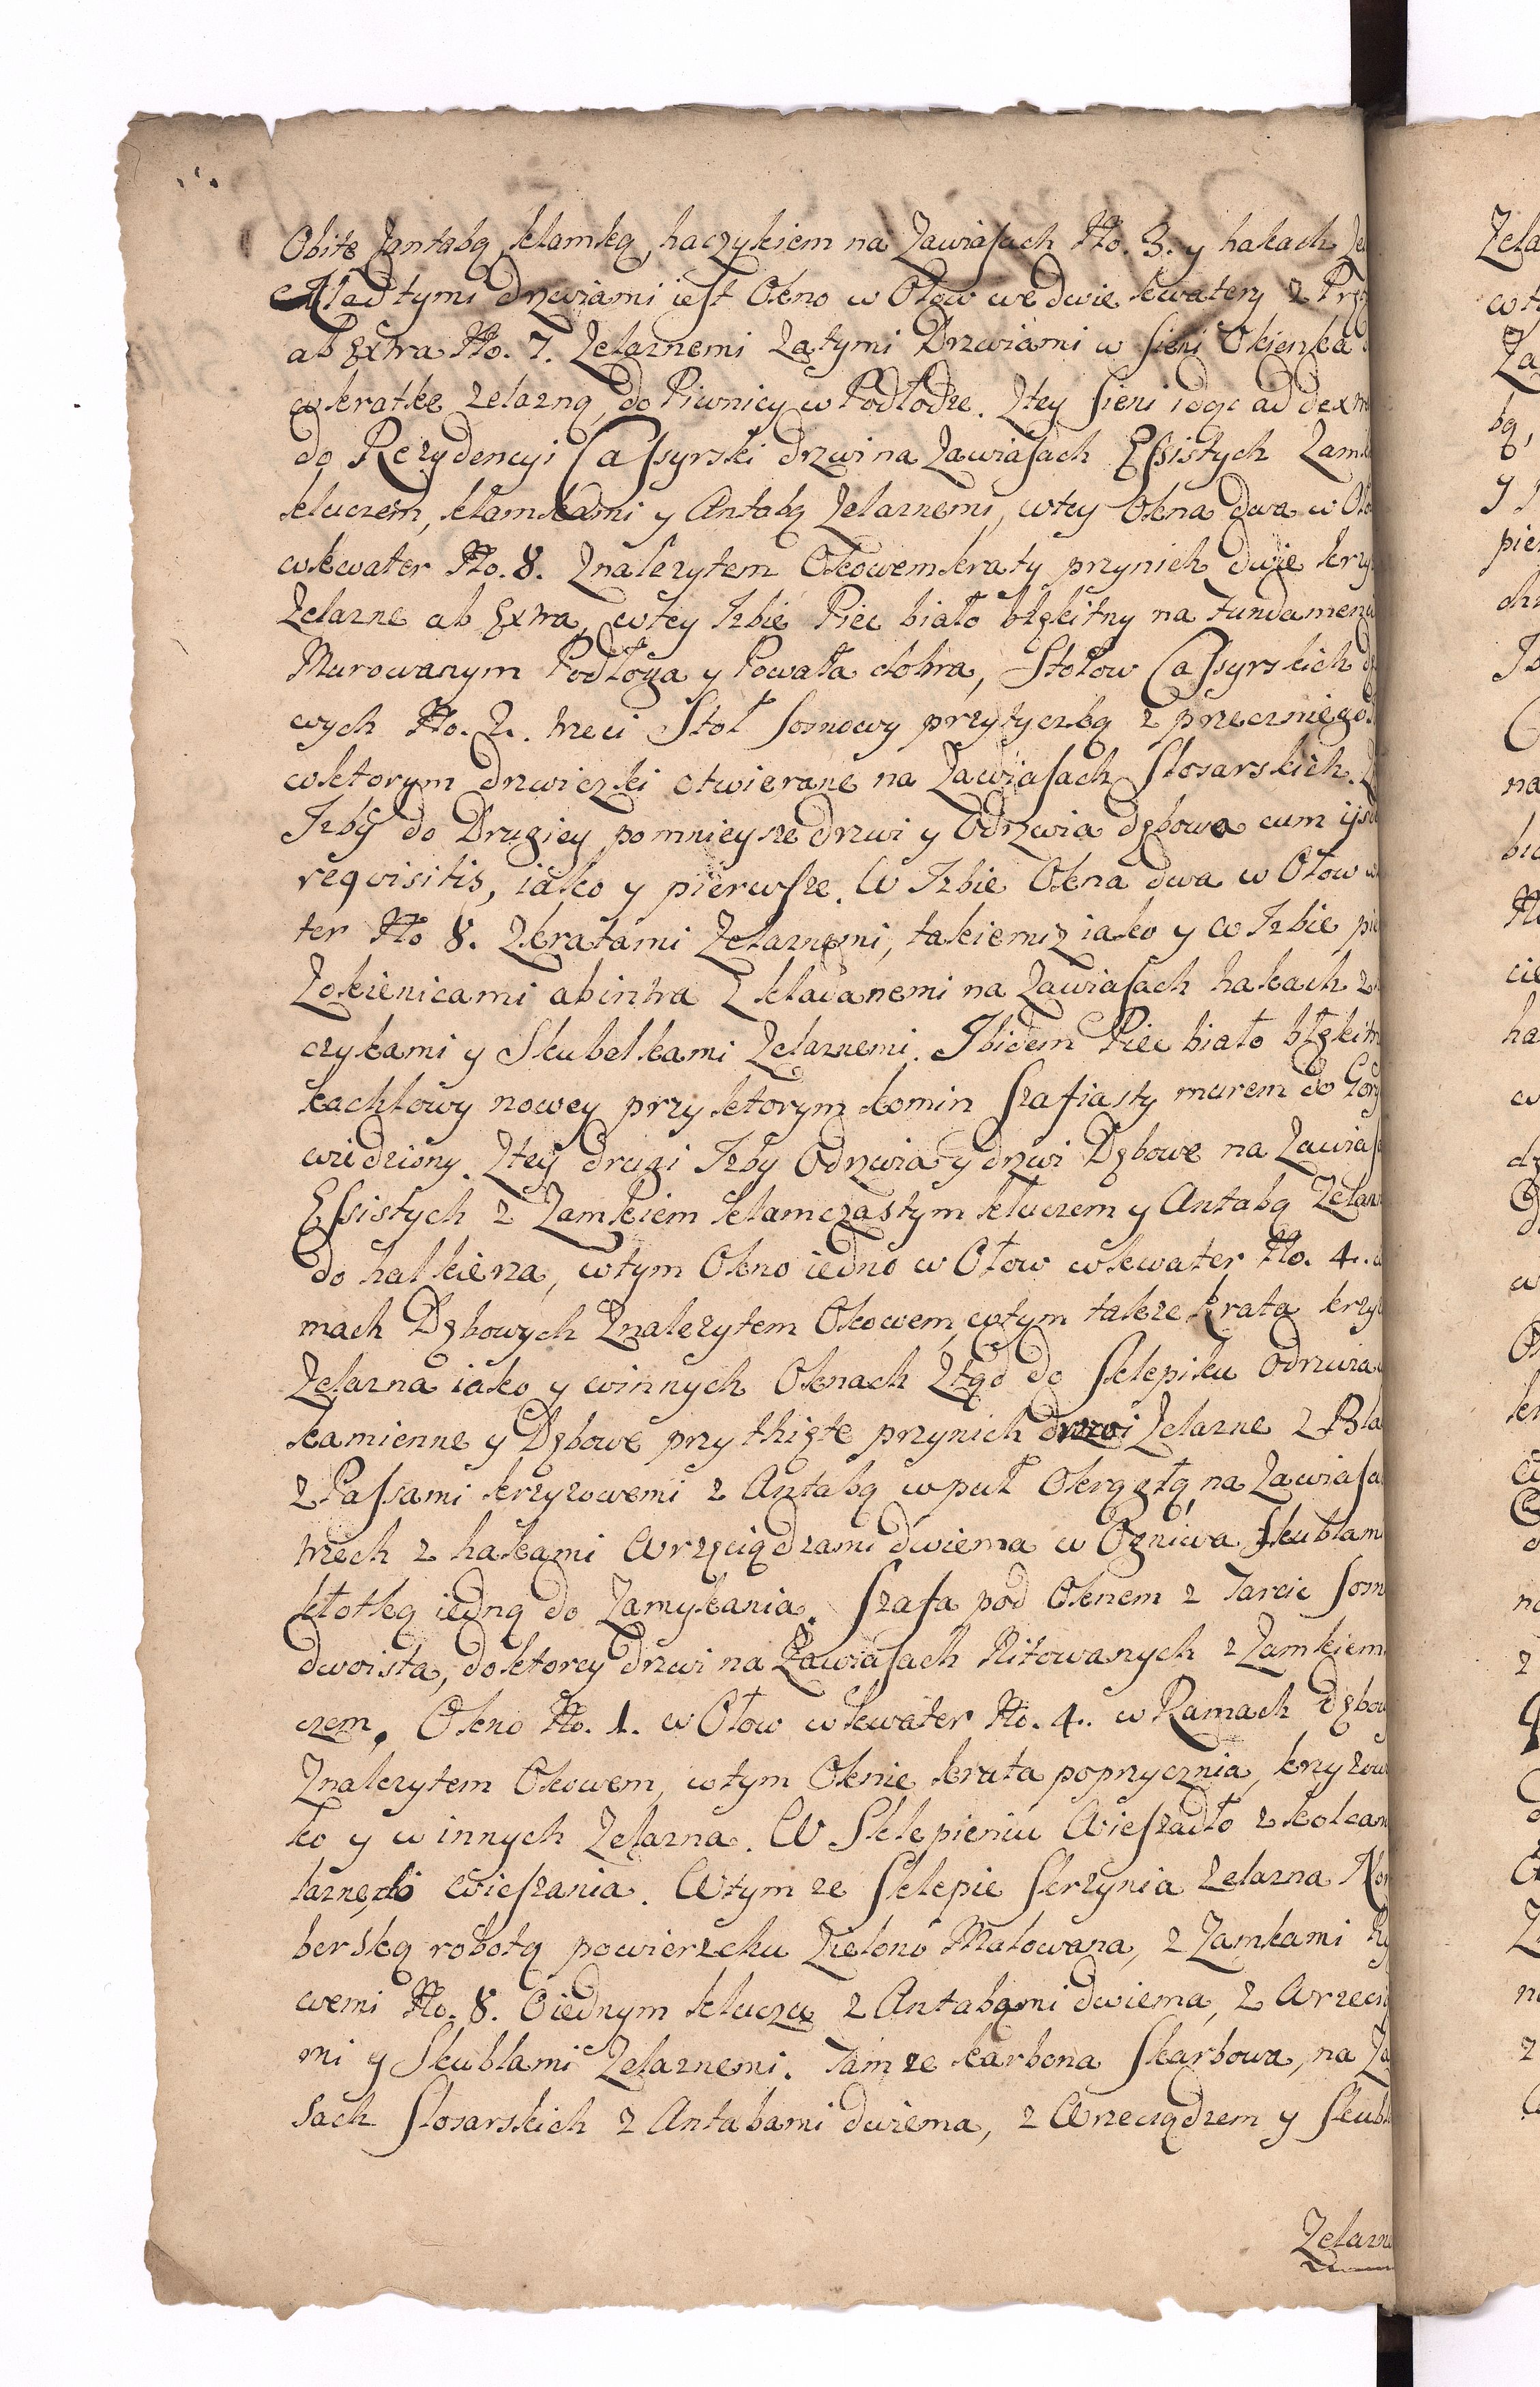 Obite Jantabą, klamką, haczykiem na Zawiasach No. 3. y hakach Że
Nad tymi drzwiami iest Okno w Ołow we dwie kwatery z Pręt
ab Extra No. 7. Żelaznemi Zatymi Drzwiami w Sieni Okienka
w kratkę żelazną, do Piwnicy w Podłodze. Ztey Sieni idąc ad dextr
do Rezydencyi Cassyrski drzwi na Zawiasach Essistych Zamk
kluczem, klamkami y Antabą Żelaznemi, wtey Okna dwa w Oło
w kwater No. 8. Znależytem Okowem kraty przynich dwie krzy
Żelazne ab Extra, wtey Izbie Piec biało błękitny na Fundamenci
Murowanym Podłoga y Powała dobra, Stołow Cassyrskich d
wych No. 2. trzeci Stoł Sosnowy przytyczką z przeczniego
w ktorym drzwiczki otwierane na Zawiasach Slosarskich. Z
Izby do Drugiey pomnieysze drzwi y Odrzwia dębowe cum ijsd
reqvisitis, iako y pierwsze. W Izbie Okna dwa w Ołow w
ter No 8. Zkratami Żelaznemi, takiemiz iako y w Izbie pie
Zokienicami abintra Zkladanemi na Zawiasach hakach z
czykami y Skubelkami Żelaznemi. Ibidem Piec biało błękitn
kachlowy nowey przy ktorym komin Szafiasty murem do Gory
wiedziony. Ztey drugi Izby Odrzwia y drzwi Dębowe na Zawias
Essistych z Zamkiem klamczastym kluczem y Antabą Żelaz
do halkierza, wtym Okno iedno w Ołow w kwater No. 4. w
mach Dębowych Znależytem Okowem, wtym także krata krzyż
Żelazna iako y winnych Oknach Ztąd do Sklepiku Odrzwia
kamienne y Dębowe przythięte przynich drzwi Żelazne z Bla
z Passami krzyzowemi z Antabą wpuł Okrągłą, na Zawiasa
trzech z hakami Wrzęciądzami dwiema w Ogniwa Skublam
kłotką iedną do Zamykania. Szafa pod Oknem z Tarcic Sosn
dwoista, do ktorey drzwi na Zawiasach Nitowanych z Zamkiem
czem, Okno No. 1. w Ołow w kwater No. 4. w Ramach Dębow
Znależytem Okowem, wtym Oknie krata poprzycznia, krzyzow
ko y w innych Żelazna. W Sklepieniu Wieszadło z kolcam
lazne, do wieszania. Wtym ze Sklepie Skrzynia żelazna Nor
berską robotą powierzchu Zielono Malowana, z Zamkami Ry
wemi No. 8. Oiednym kluczu z Antabami dwiema, z Wrzecią
mi y Skublami Żelaznemi. Tamze karbona Skarbowa, na Za
sach Slosarskich z Antabami dwiema, z Wrzeciądzem y Skubl
Żelazn